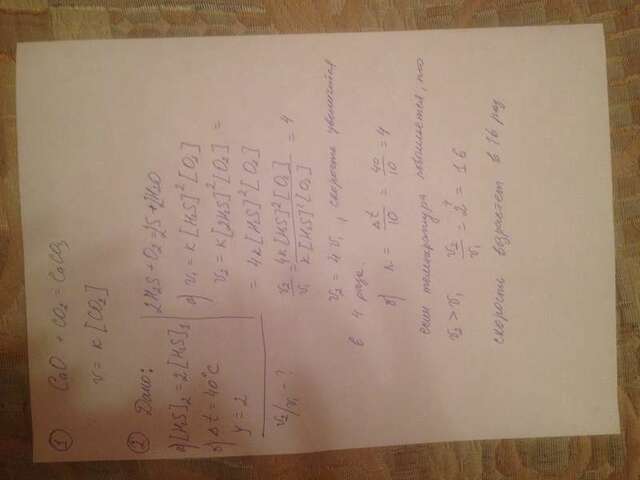 1 CaO + CO₂ = CaCO₃
v = к [CO₂]
2 Дано:
а) [H₂S]₂ = 2 [H₂S]₁
б) Δt = 40°C
γ = 2
v₂/v₁ - ?
2H₂S + O₂ = 2S + 2H₂O
а) v₁ = к [H₂S]² [O₂]
v₂ = к [2H₂S]² [O₂] =
= 4к [H₂S]² [O₂]
v₂/v₁ = 4к [H₂S]² [O₂] / к [H₂S]² [O₂] = 4
v₂ = 4 v₁, скорость увеличится
в 4 раза.
б) n = Δt/10 = 40/10 = 4
если температура повышается, то
v₂ > v₁ v₂/v₁ = 2⁴ = 16
скорость возрастет в 16 раз